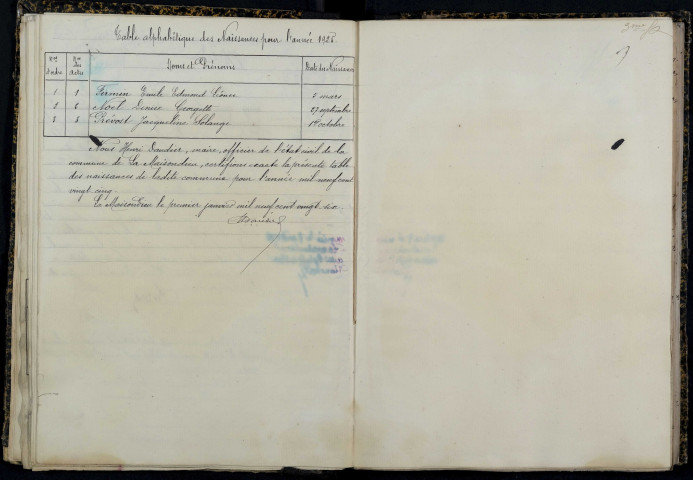 Table alphabétique des Naissances pour l'année 1925.
Nos d'ordre Nos des Actes Noms et Prénoms Date des Naissances
1 1 Firmin Emile Edmond 2 mars
2 2 Noël Denise Georgette 27 septembre
3 3 Prévost Jacqueline Solange 1er octobre
Nous Henri Daudier, maire, officier de l'état civil de la
commune de La Maisondieu, certifions exacte la présente table
des naissances de ladite commune pour l'année mil neuf cent
vingt cinq.
La Maisondieu le premier janvier mil neuf cent vingt six.